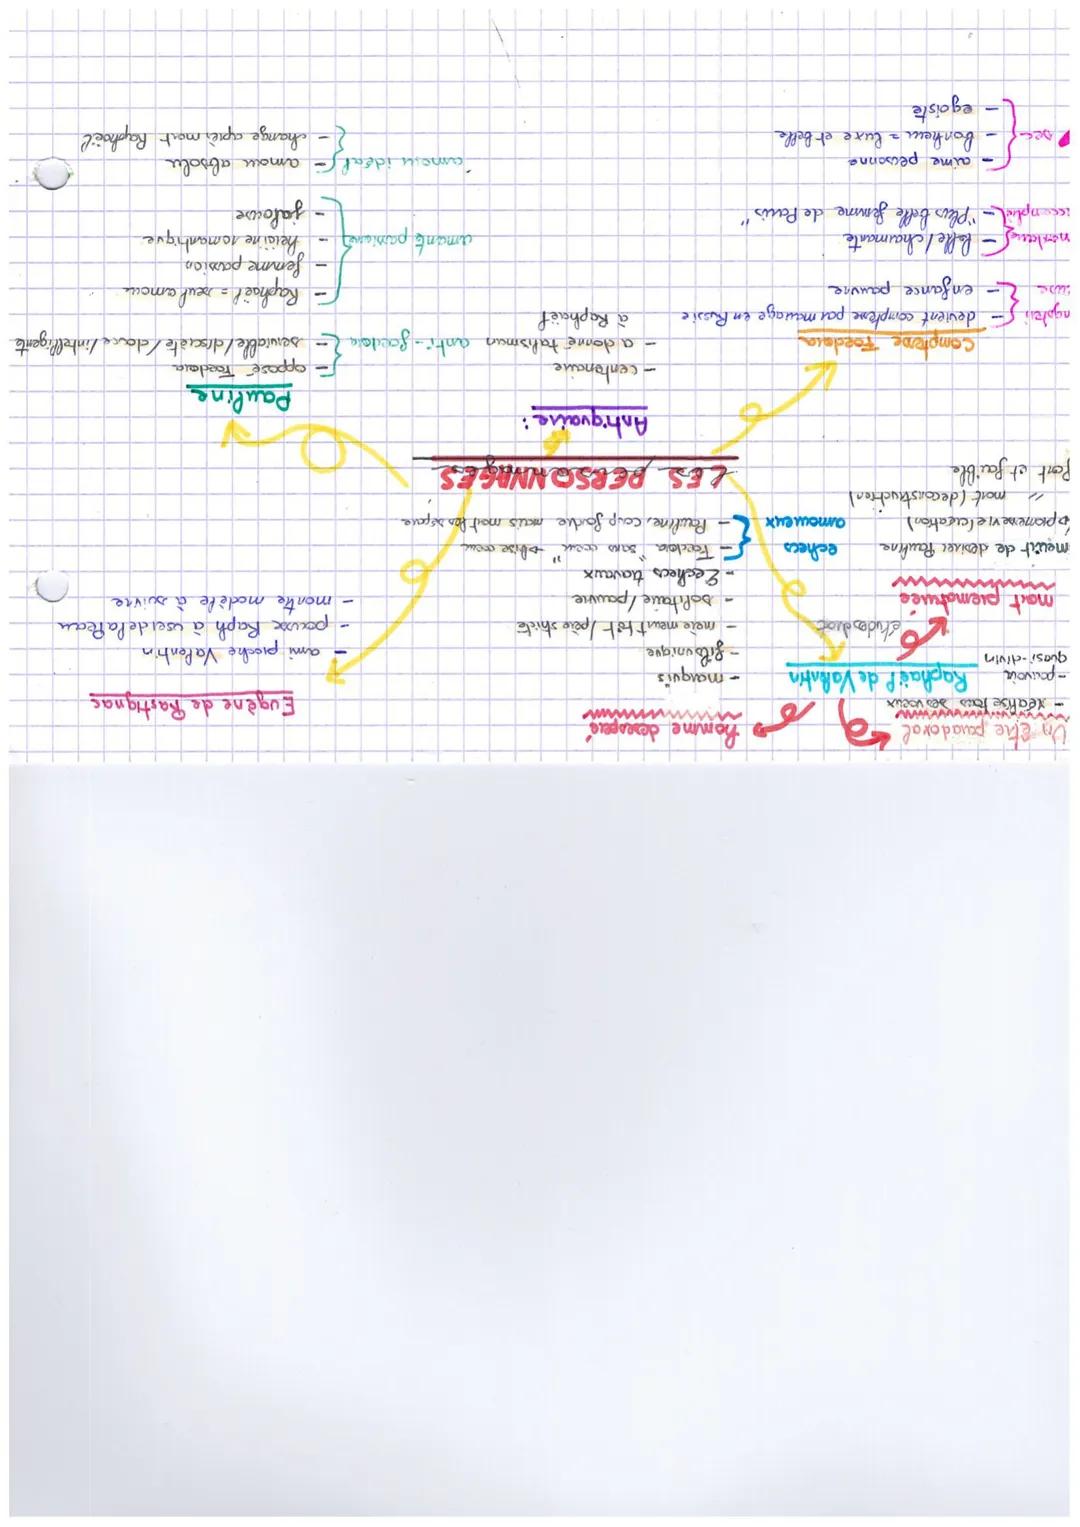 Un être paradoxal
- réalise tous ses voeux
- pouvoir
quasi-divin
Raphaël de Valentin
études droit
mort prematurée
meurt de désirer Pauline
promesse vie (création)
" mort (deconstruction)
fort et faible
homme désespéré
- marquis
- fils unique
- mère meurt tôt / père stricte
- solitaire / pauvre
- 2 echecs travaux
echecs
amoureux
- Foedora "sans coeur" → brise coeur
- Pauline, coup foudre mais mort les sépare
Eugène de Rastignac
- ami proche Valentin
- pousse Raph à user de la Peau
- montre modèle à suivre
LES PERSONNAGES
Comptesse Foedora
- devient comptesse par mariage en Russie
- enfance pauvre
- belle / charmante
- "Plus belle femme de Paris"
- aime personne
- bonheur = luxe et belle
- egoiste
Antiquaire :
- centenaire
- a donné talisman
à Raphaël
Pauline
anti-foedora
- opposé Foedora
- serviable / discrète / douce / intelligente
amante passionné
- Raphaël = seul amour
- femme passion
- heroïne romantique
- jalouse
amour idéal
- amour absolu
- change après mort Raphaël